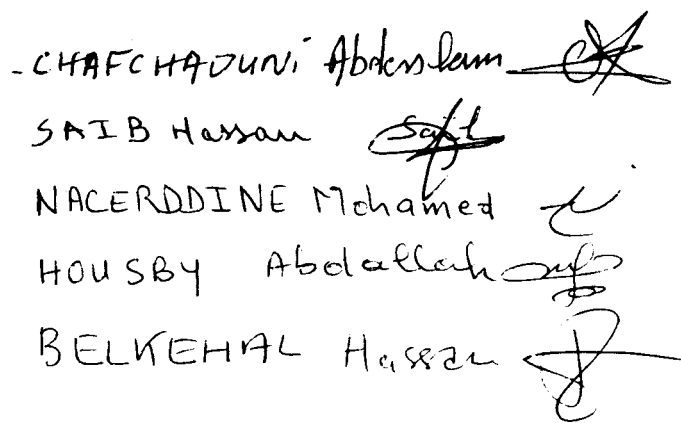 - CHAFCHAOUNi Abdesslam
SAIB Hassan Saib
NACERDDINE Mohamed
HOUSBY Abdallah
BELKEHAL Hassan